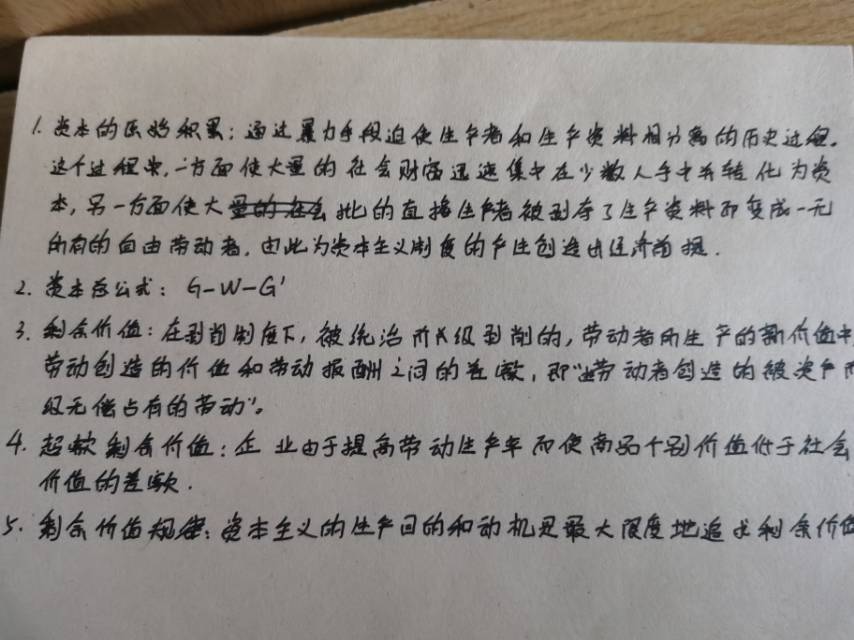 1. 资本的原始积累：通过暴力手段迫使生产者和生产资料相分离的历史过程。
这个过程中，一方面使大量的社会财富迅速集中在少数人手中并转化为资
本，另一方面使大批的直接生产者被剥夺了生产资料而变成一无
所有的自由劳动者，由此为资本主义制度的产生创造出经济前提．
2. 资本总公式：G-W-G'
3. 剩余价值：在剥削制度下，被统治阶级剥削的，劳动者所生产的新价值中
劳动创造的价值和劳动报酬之间的差额，即“劳动者创造的被资产阶
级无偿占有的劳动”。
4. 超额剩余价值：企业由于提高劳动生产率而使商品个别价值低于社会
价值的差额．
5. 剩余价值规律：资本主义的生产目的和动机是最大限度地追求剩余价值